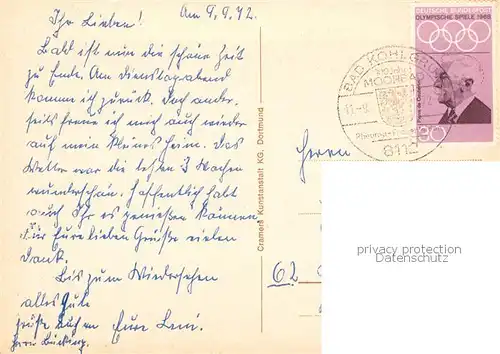 Am 9.9.72.
Ihr Lieben!
Bald ist nun die schöne Zeit
zu Ende. Am Dienstagabend
komme ich zurück. Doch ander-
seits freue ich mich auch wieder
auf mein kleines Heim. Das
Wetter war die letzten 3 Wochen
wunderschön. Hoffentlich habt
auch Ihr es genießen können
Für Eure lieben Grüße vielen
Dank.
Bis zum Wiedersehen
alles Gute
grüße auch an Eure Leni.
Herrn
DEUTSCHE BUNDESPOST
OLYMPISCHE SPIELE 1968
30
BAD KOHLGRUB
MOORBAD
Rheuma-
811
Cramers Kunstanstalt KG, Dortmund
Herrn
62
privacy protection
Datenschutz